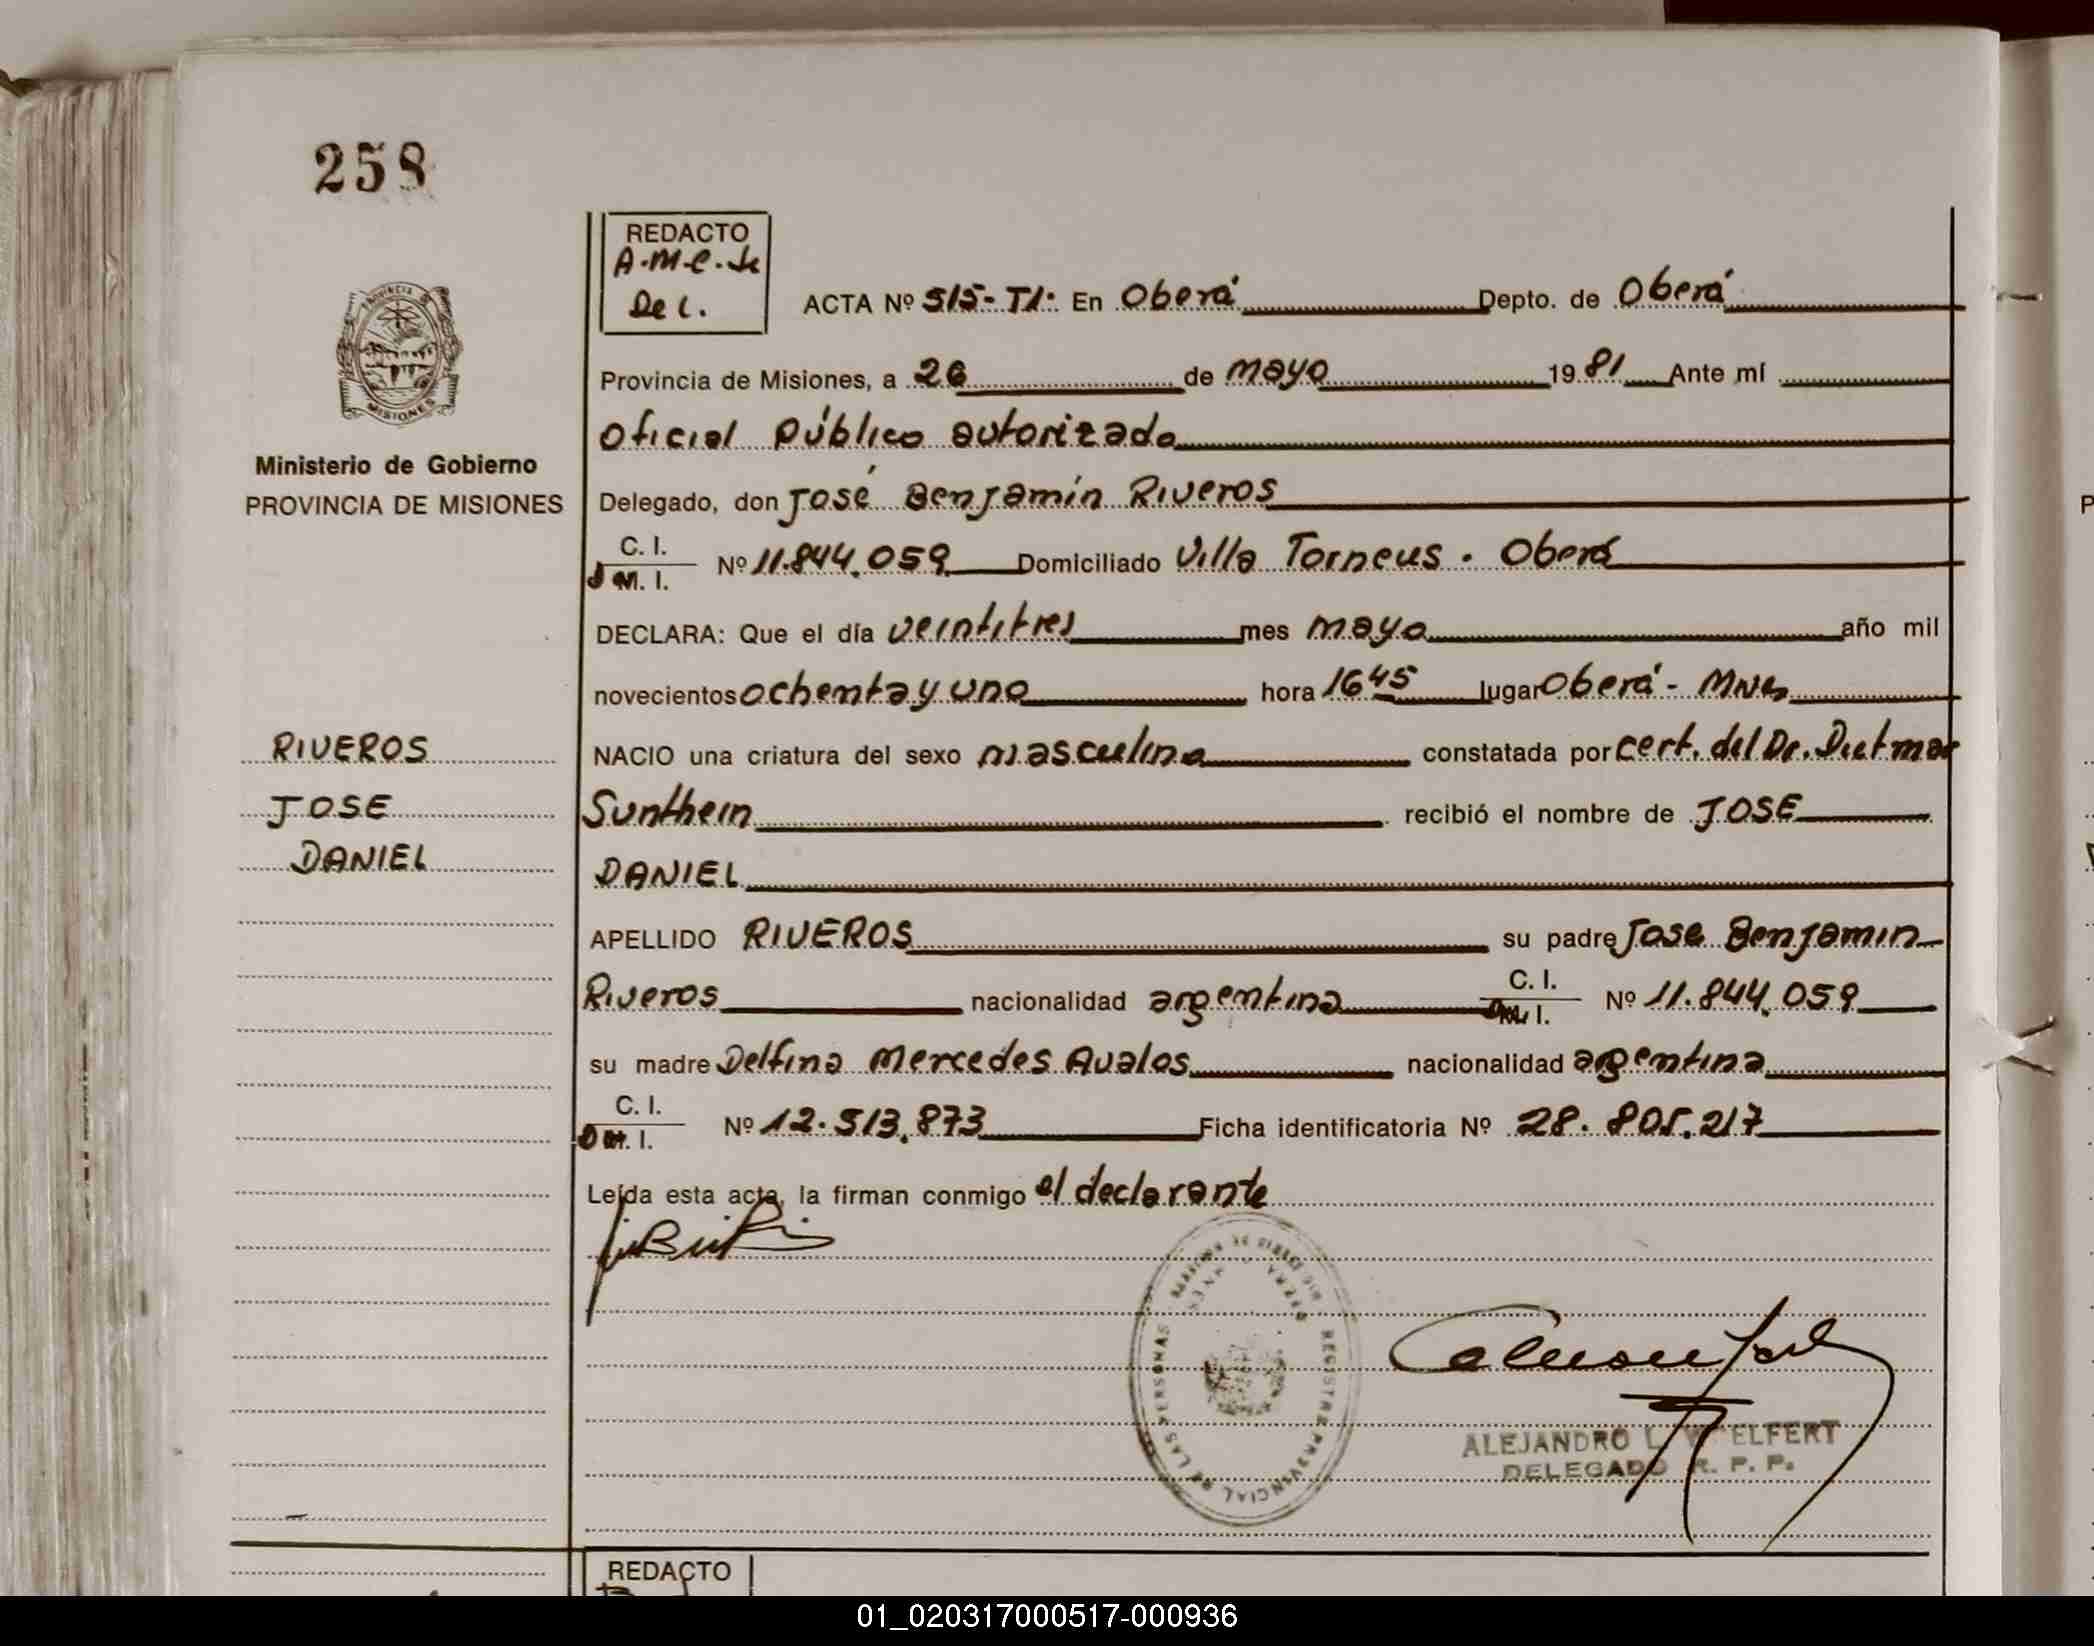 258
REDACTO
A.M.C. de
De L.
ACTA Nº 515-TI· En Oberá Depto. de Oberá
Provincia de Misiones, a 26 de mayo 1981 Ante mí
Oficial Público autorizado
Delegado, don José Benjamín Riveros
C. I.
D M. I. Nº 11.844.059 Domiciliado Villa Torneus. Oberá
DECLARA: Que el día veintitres mes mayo año mil
novecientos ochenta y uno hora 1645 lugar Oberá - Mnes
NACIO una criatura del sexo masculino constatada por cert. del Dr. Dietmar
Sunthein recibió el nombre de JOSE
DANIEL
APELLIDO RIVEROS su padre Jose Benjamin
Riveros nacionalidad argentina C. I. Nº 11.844.059
su madre Delfina Mercedes Avalos nacionalidad argentina
C. I.
D M. I. Nº 12.513.873 Ficha identificatoria Nº 28.805.217
Leída esta acta, la firman conmigo el declarante
PROVINCIA DE
MISIONES
Ministerio de Gobierno
PROVINCIA DE MISIONES
RIVEROS
JOSE
DANIEL
REGISTRO PROVINCIAL DE LAS PERSONAS
ALEJANDRO L. WELFERT
DELEGADO R. P. P.
REDACTO
01_020317000517-000936